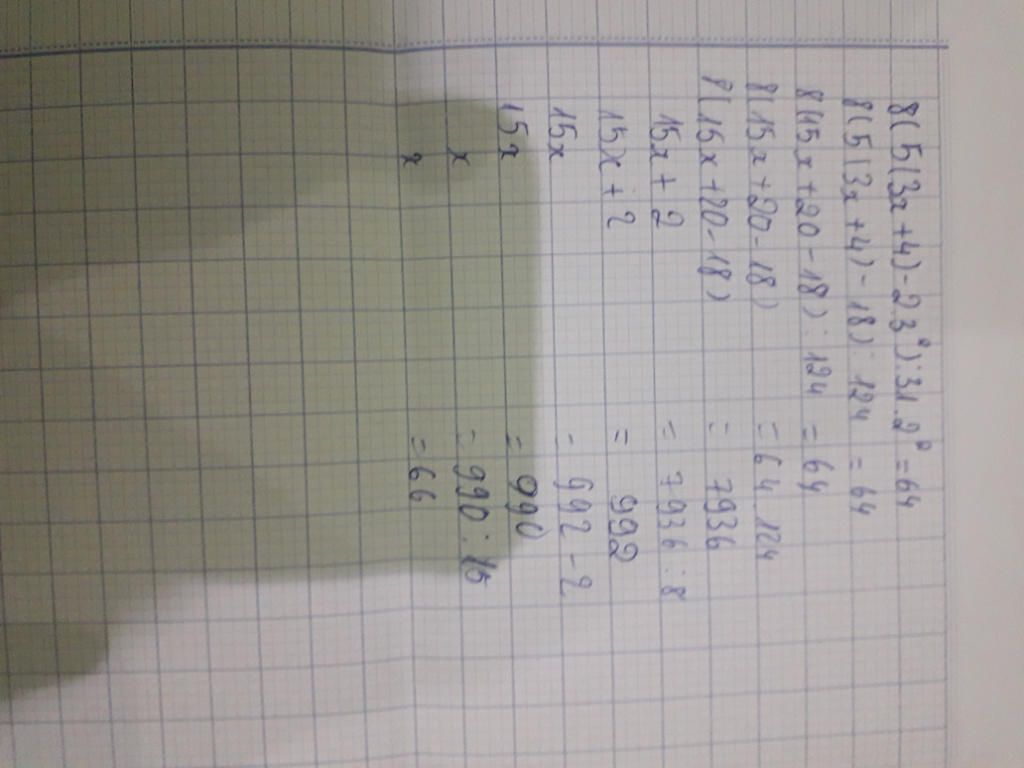 8(5(3x+4)-2.3²):31.2² =64
8(5(3x+4)-18):124 =64
8(15x+20-18):124 =64
8(15x+20-18) =64.124
8(15x+20-18) =7936
15x+2 =7936:8
15x+2 =992
15x =992-2
15x =990
x =990:15
x =66